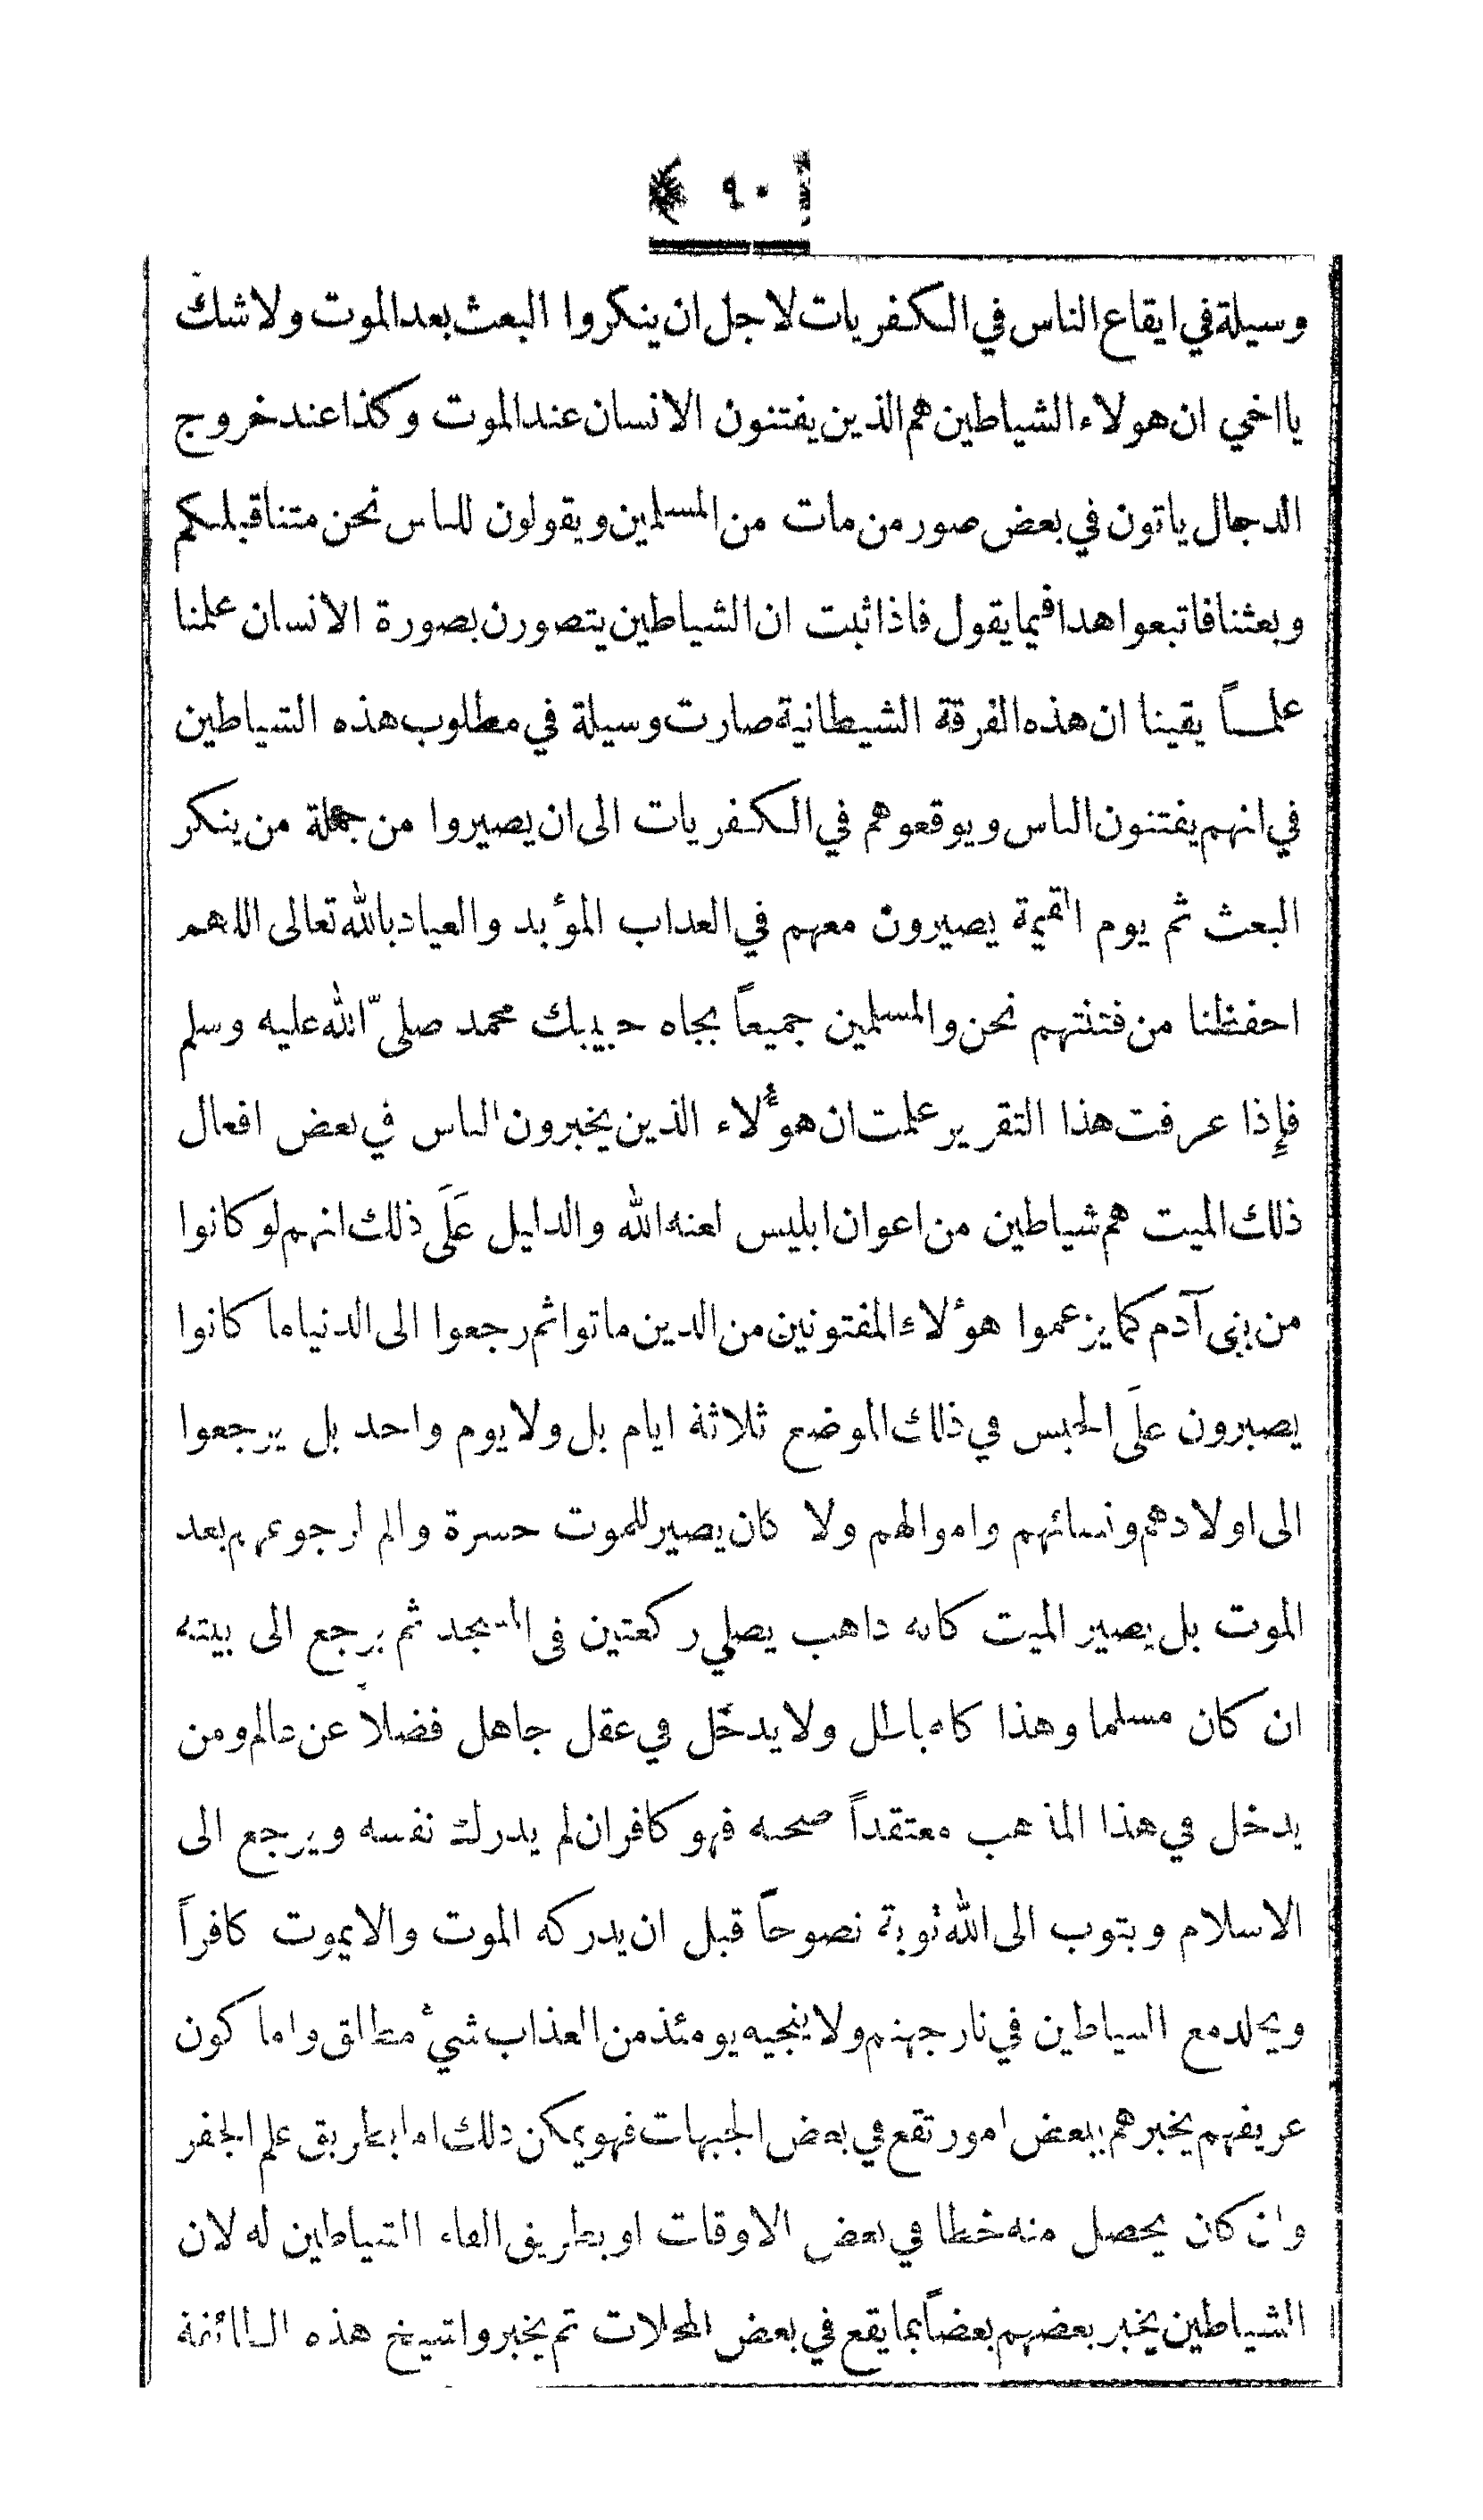 ﴿ ٩٠ ﴾
وسيلة في ايقاع الناس في الكفريات لاجل ان ينكروا البعث بعد الموت ولا شك
يا اخي ان هولاء الشياطين هم الذين يفتنون الانسان عند الموت وكذا عند خروج
الدجال ياتون في بعض صور من مات من المسلمين ويقولون للناس نحن متنا قبلكم
وبعثنا فاتبعوا هذا فيما يقول فاذا ثبت ان الشياطين يتصورن بصورة الانسان علمنا
علماً يقينا ان هذه الفرقة الشيطانية صارت وسيلة في مطلوب هذه الشياطين
في انهم يفتنون الناس ويوقعوهم في الكفريات الى ان يصيروا من جملة من ينكر
البعث ثم يوم القيمة يصيرون معهم في العذاب المؤبد والعياذ بالله تعالى اللهم
احفظنا من فتنتهم نحن والمسلمين جميعاً بجاه حبيبك محمد صلى الله عليه وسلم
فإذا عرفت هذا التقرير علمت ان هؤلاء الذين يخبرون الناس في بعض افعال
ذلك الميت هم شياطين من اعوان ابليس لعنه الله والدليل عَلَى ذلك انهم لو كانوا
من بني آدم كما يزعموا هؤلاء المفتونين من الذين ماتوا ثم رجعوا الى الدنيا ما كانوا
يصبرون علَى الحبس في ذلك الموضع ثلاثة ايام بل ولا يوم واحد بل يرجعوا
الى اولادهم ونسائهم واموالهم ولا كان يصير للموت حسرة والم لرجوعهم بعد
الموت بل يصير الميت كانه ذاهب يصلي ركعتين في المسجد ثم يرجع الى بيته
ان كان مسلما وهذا كله باطل ولا يدخل في عقل جاهل فضلاً عن عالم ومن
يدخل في هذا المذهب معتقداً صحته فهو كافر ان لم يدرك نفسه ويرجع الى
الاسلام ويتوب الى الله توبة نصوحاً قبل ان يدركه الموت والا يموت كافراً
ويخلد مع الشياطين في نار جهنم ولا ينجيه يومئذ من العذاب شيء مطلق واما كون
عريفهم يخبرهم ببعض امور تقع في بعض الجهات فهو يمكن ذلك اما بطريق علم الجفر
وان كان يحصل منه خطا في بعض الاوقات او بطريق القاء الشياطين له لان
الشياطين يخبر بعضهم بعضاً بما يقع في بعض المحلات ثم يخبروا شيخ هذه الطائفة